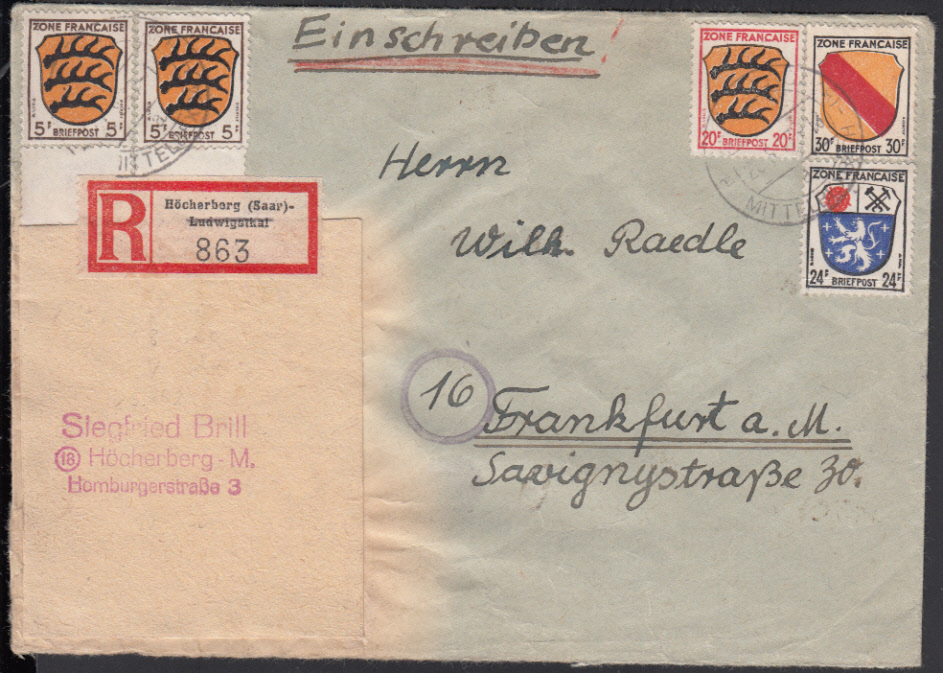 ZONE FRANCAISE
5F BRIEFPOST 5F
ZONE FRANCAISE
5F BRIEFPOST 5F
Einschreiben!
ZONE FRANCAISE
20F BRIEFPOST 20F
ZONE FRANCAISE
30F BRIEFPOST 30F
ZONE FRANCAISE
24F BRIEFPOST 24F
MITTELB
R
Höcherberg (Saar)-
Ludwigsthal
863
Herrn
Wilh. Raedle
16
Frankfurt a. M.
Savignystraße 30.
Siegfried Brill
18 Höcherberg-M.
Homburgerstraße 3